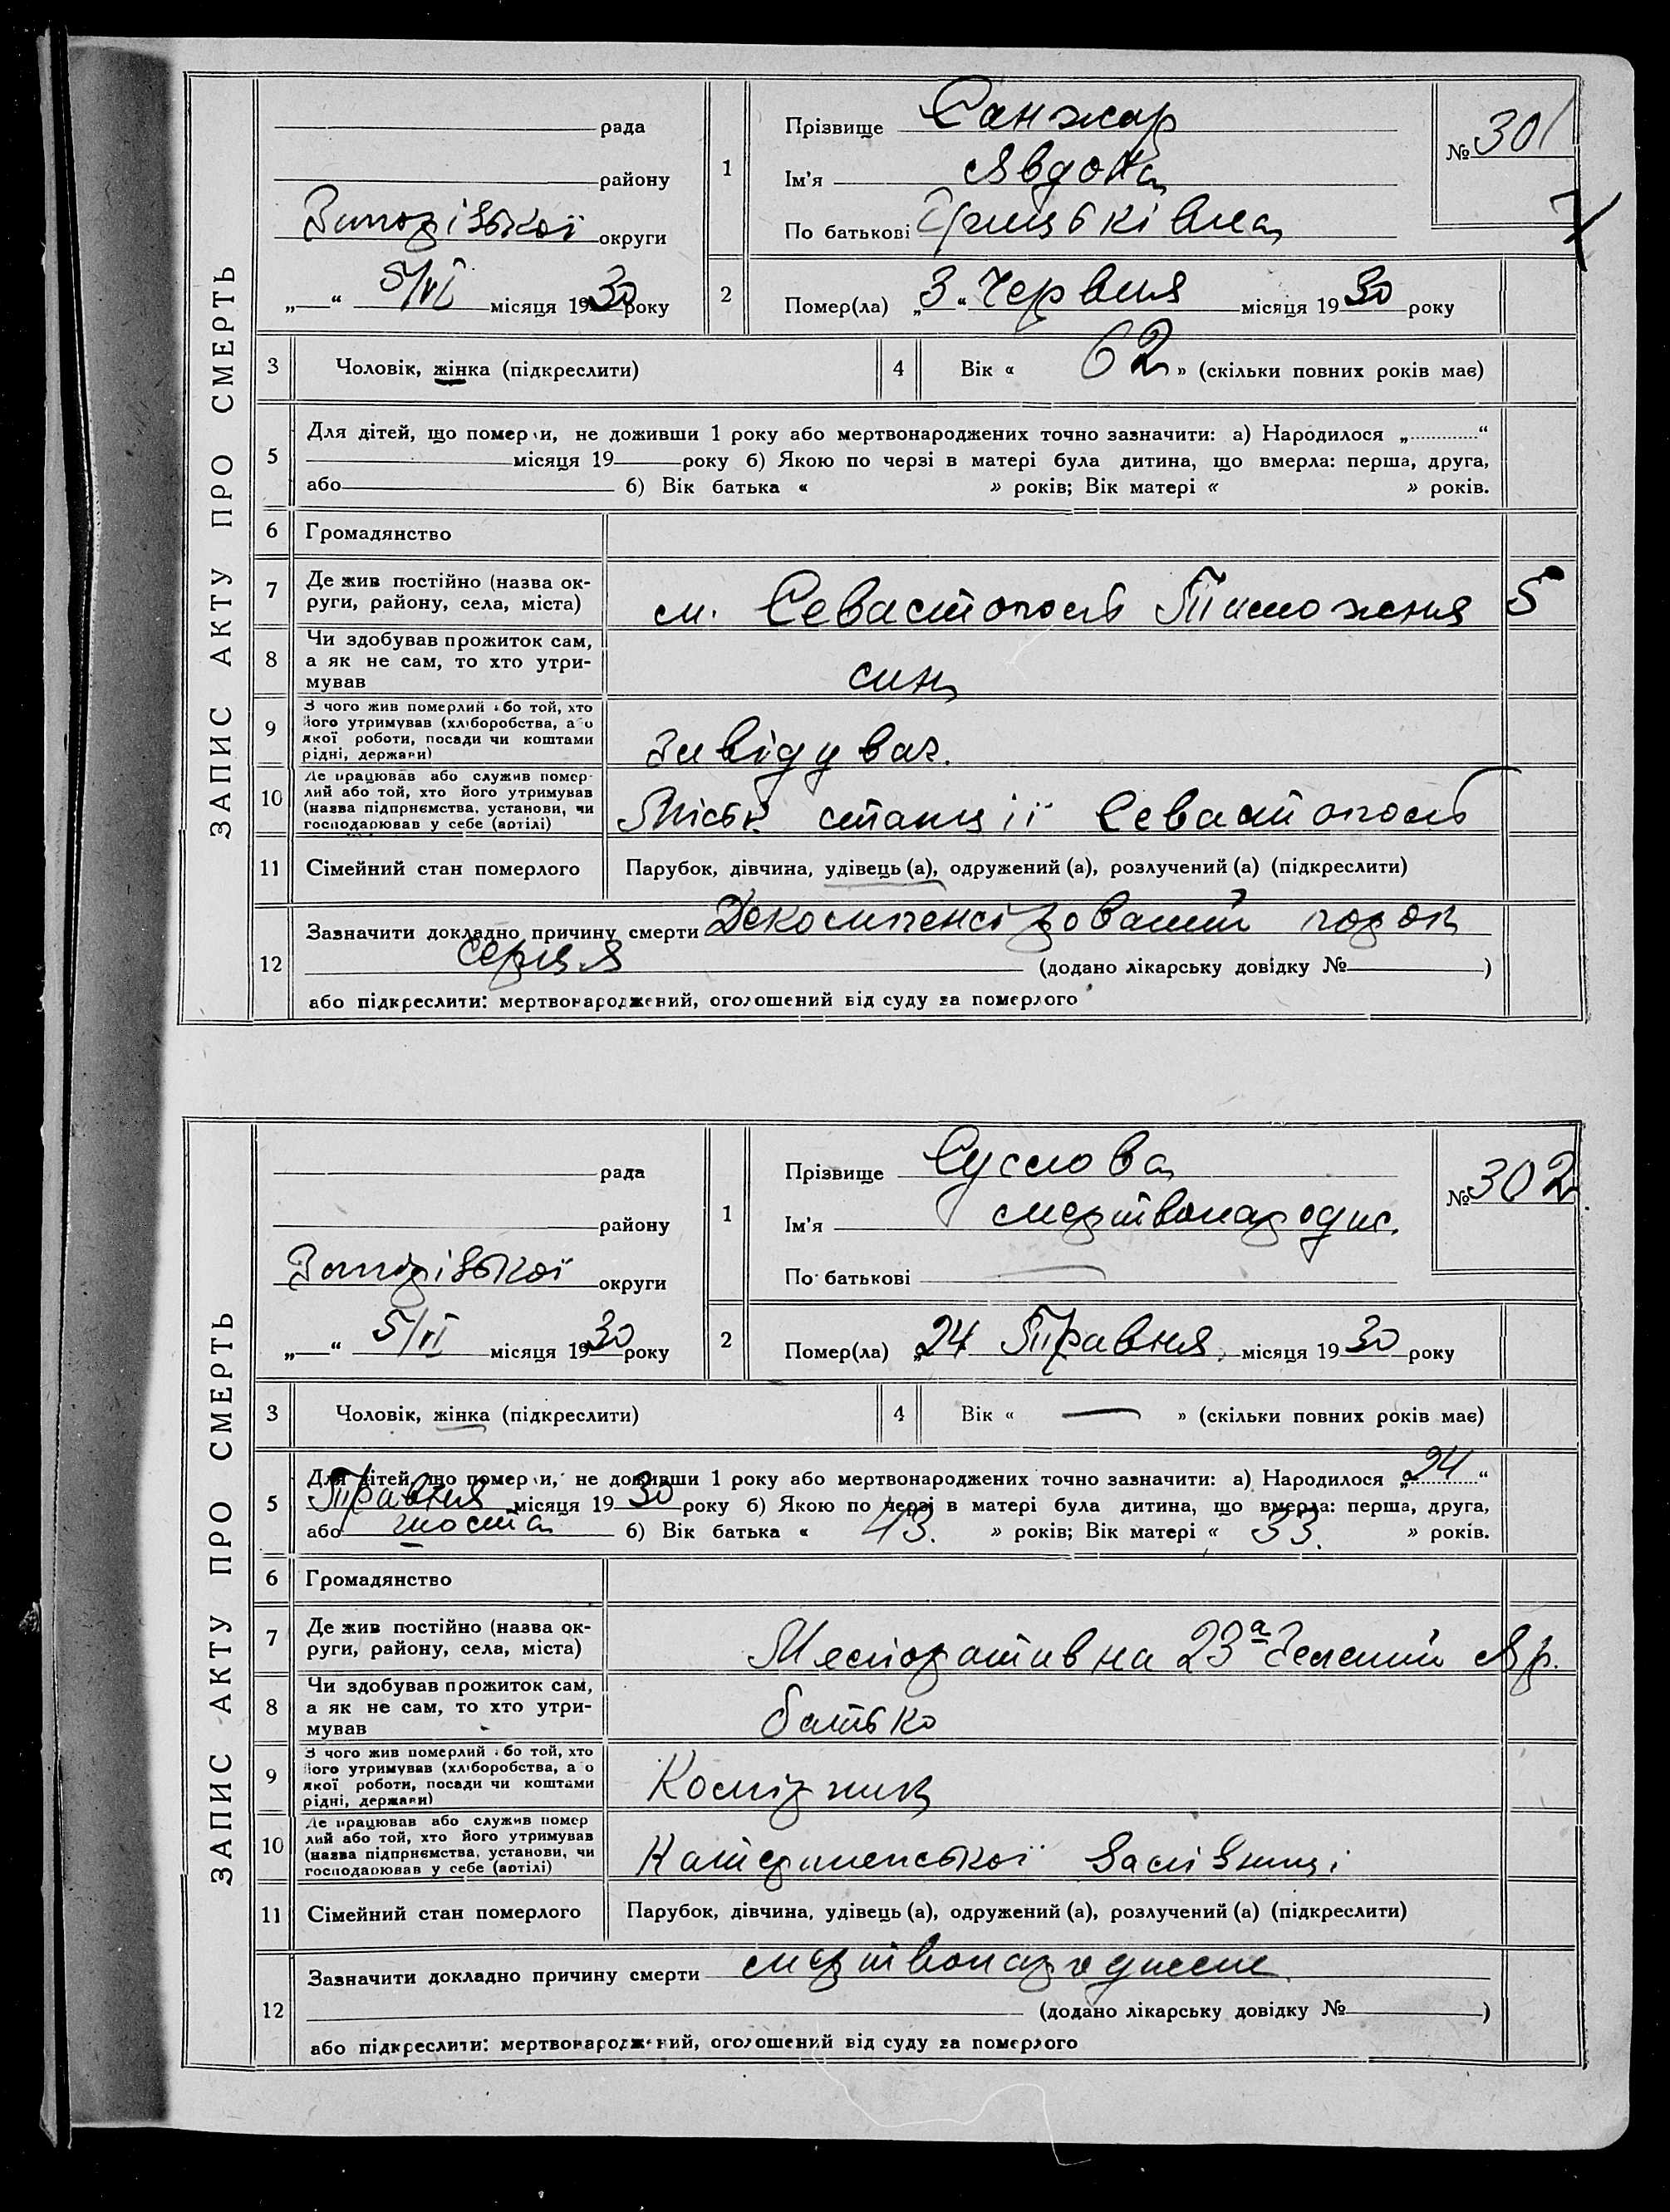 ЗАПИС АКТУ ПРО СМЕРТЬ
рада
району
Запорізької округи
„ “ 5/VI місяця 1930 року
1
Прізвище Санжар
Ім'я Явдоха
По батькові Грицьківна
№ 301
2
Помер(ла) „3“ Червня місяця 1930 року
3 Чоловік, жінка (підкреслити)
4 Вік « 62 » (скільки повних років має)
5
Для дітей, що померли, не доживши 1 року або мертвонароджених точно зазначити: а) Народилося „ “
місяця 19 року б) Якою по черзі в матері була дитина, що вмерла: перша, друга,
або б) Вік батька « » років; Вік матері « » років.
6 Громадянство
7 Де жив постійно (назва ок-
руги, району, села, міста)
м. Севастополь 5
8 Чи здобував прожиток сам,
а як не сам, то хто утри-
мував
син
9 З чого жив померлий або той, хто
його утримував (хліборобства, або
якої роботи, посади чи коштами
рідні, держави)
завідувач.
10 Де працював або служив помер-
лий або той, хто його утримував
(назва підприємства, установи, чи
господарював у себе (артілі)
станції Севастополь
11 Сімейний стан померлого Парубок, дівчина, удівець (а), одружений (а), розлучений (а) (підкреслити)
12
Зазначити докладно причину смерти Декомпенсірований порок
серця (додано лікарську довідку № )
або підкреслити: мертвонароджений, оголошений від суду за померлого
ЗАПИС АКТУ ПРО СМЕРТЬ
рада
району
Запорізької округи
„ “ 5/VI місяця 1930 року
1
Прізвище Суслова
Ім'я мертвонародж.
По батькові —
№ 302
2
Помер(ла) „24 Травня місяця 1930 року
3 Чоловік, жінка (підкреслити)
4 Вік « — » (скільки повних років має)
5
Для дітей, що померли, не доживши 1 року або мертвонароджених точно зазначити: а) Народилося „24“
Травня місяця 1930 року б) Якою по черзі в матері була дитина, що вмерла: перша, друга,
або шоста б) Вік батька « 43. » років; Вік матері « 33. » років.
6 Громадянство
7 Де жив постійно (назва ок-
руги, району, села, міста)
23а Зелений Яр.
8 Чи здобував прожиток сам,
а як не сам, то хто утри-
мував
батько
9 З чого жив померлий або той, хто
його утримував (хліборобства, або
якої роботи, посади чи коштами
рідні, держави)
Комірник
10 Де працював або служив помер
лий або той, хто його утримував
(назва підприємства, установи, чи
господарював у себе (артілі)
Катериненської Залізниці
11 Сімейний стан померлого Парубок, дівчина, удівець (а), одружений (а), розлучений (а) (підкреслити)
12
Зазначити докладно причину смерти
(додано лікарську довідку № )
або підкреслити: мертвонароджений, оголошений від суду за померлого